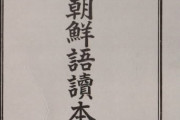 朝鮮語讀本